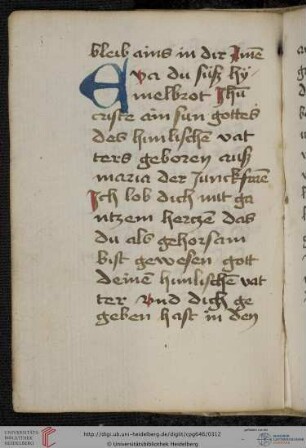 bleib ains in dir Amē
Eya du süß hy-
melbrot Jhū
criste ain sun gottes
des himlischē vat
ters geboren auß
maria der Junckfraẽ
Ich lob dich mit ga
ntzem hertzen das
du als gehorsam
bist gewesen gott
deinem himlischē vat
ter Vnd dich ge
geben hast in den
UNIVERSITÄTS-
BIBLIOTHEK
HEIDELBERG
http://digi.ub.uni-heidelberg.de/diglit/cpg648/0312
© Universitätsbibliothek Heidelberg